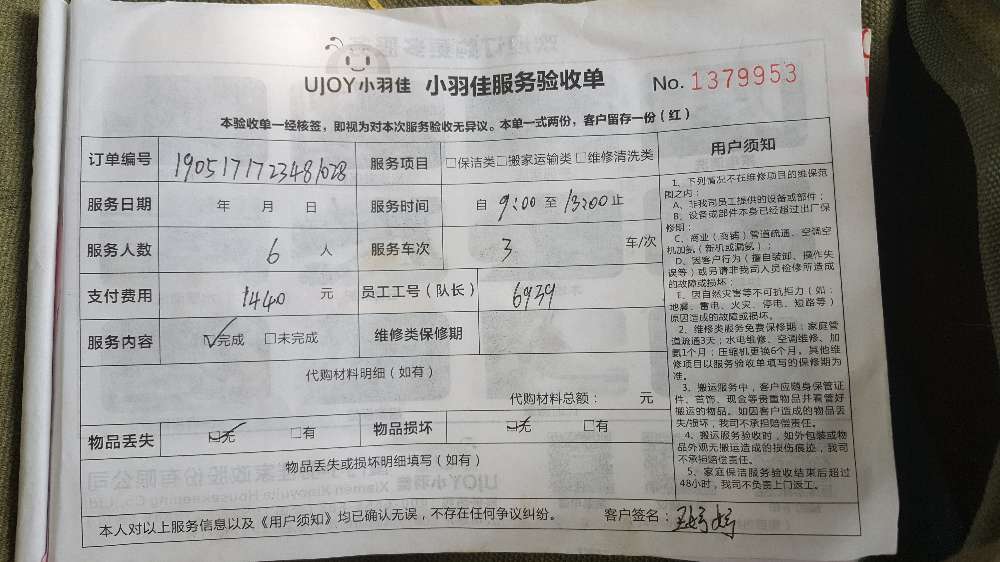 UJOY小羽佳 小羽佳服务验收单 No. 1379953
本验收单一经核签，即视为对本次服务验收无异议。本单一式两份，客户留存一份（红）
订单编号 1905171723481028 服务项目 □保洁类□搬家运输类□维修清洗类
服务日期 年 月 日 服务时间 自 9:00 至 13:00 止
服务人数 6 人 服务车次 3 车/次
支付费用 1440 元 员工工号（队长） 6939
服务内容 ☑完成 □未完成 维修类保修期
代购材料明细（如有）
代购材料总额： 元
物品丢失 ☑无 □有 物品损坏 ☑无 □有
物品丢失或损坏明细填写（如有）
本人对以上服务信息以及《用户须知》均已确认无误，不存在任何争议纠纷。 客户签名：
用户须知
1、下列情况不在维修项目的维保范
围之内：
A、非我司员工提供的设备或部件；
B、设备或部件本身已经超过出厂保
修期；
C、商业（商铺）管道疏通、空调空
机加氨（新机或漏氨）；
D、因客户行为（擅自装卸、操作失
误等）或另请非我司人员检修所造成
的故障或损坏；
E、因自然灾害等不可抗拒力（如：
地震、雷电、火灾、停电、短路等）
原因造成的故障或损坏。
2、维修类服务免费保修期：家庭管
道疏通3天；水电维修、空调维修、加
氨1个月；压缩机更换6个月。其他维
修项目以服务验收单填写的保修期为
准。
3、搬运服务中，客户应随身保管证
件、首饰、现金等贵重物品并看管好
搬运的物品。如因客户造成的物品丢
失/损坏，我司不承担赔偿责任。
4、搬运服务验收时，如外包装或物
品外观无搬运造成的损伤痕迹，我司
不承担赔偿责任。
5、家庭保洁服务验收结束后超过
48小时，我司不负责上门返工。